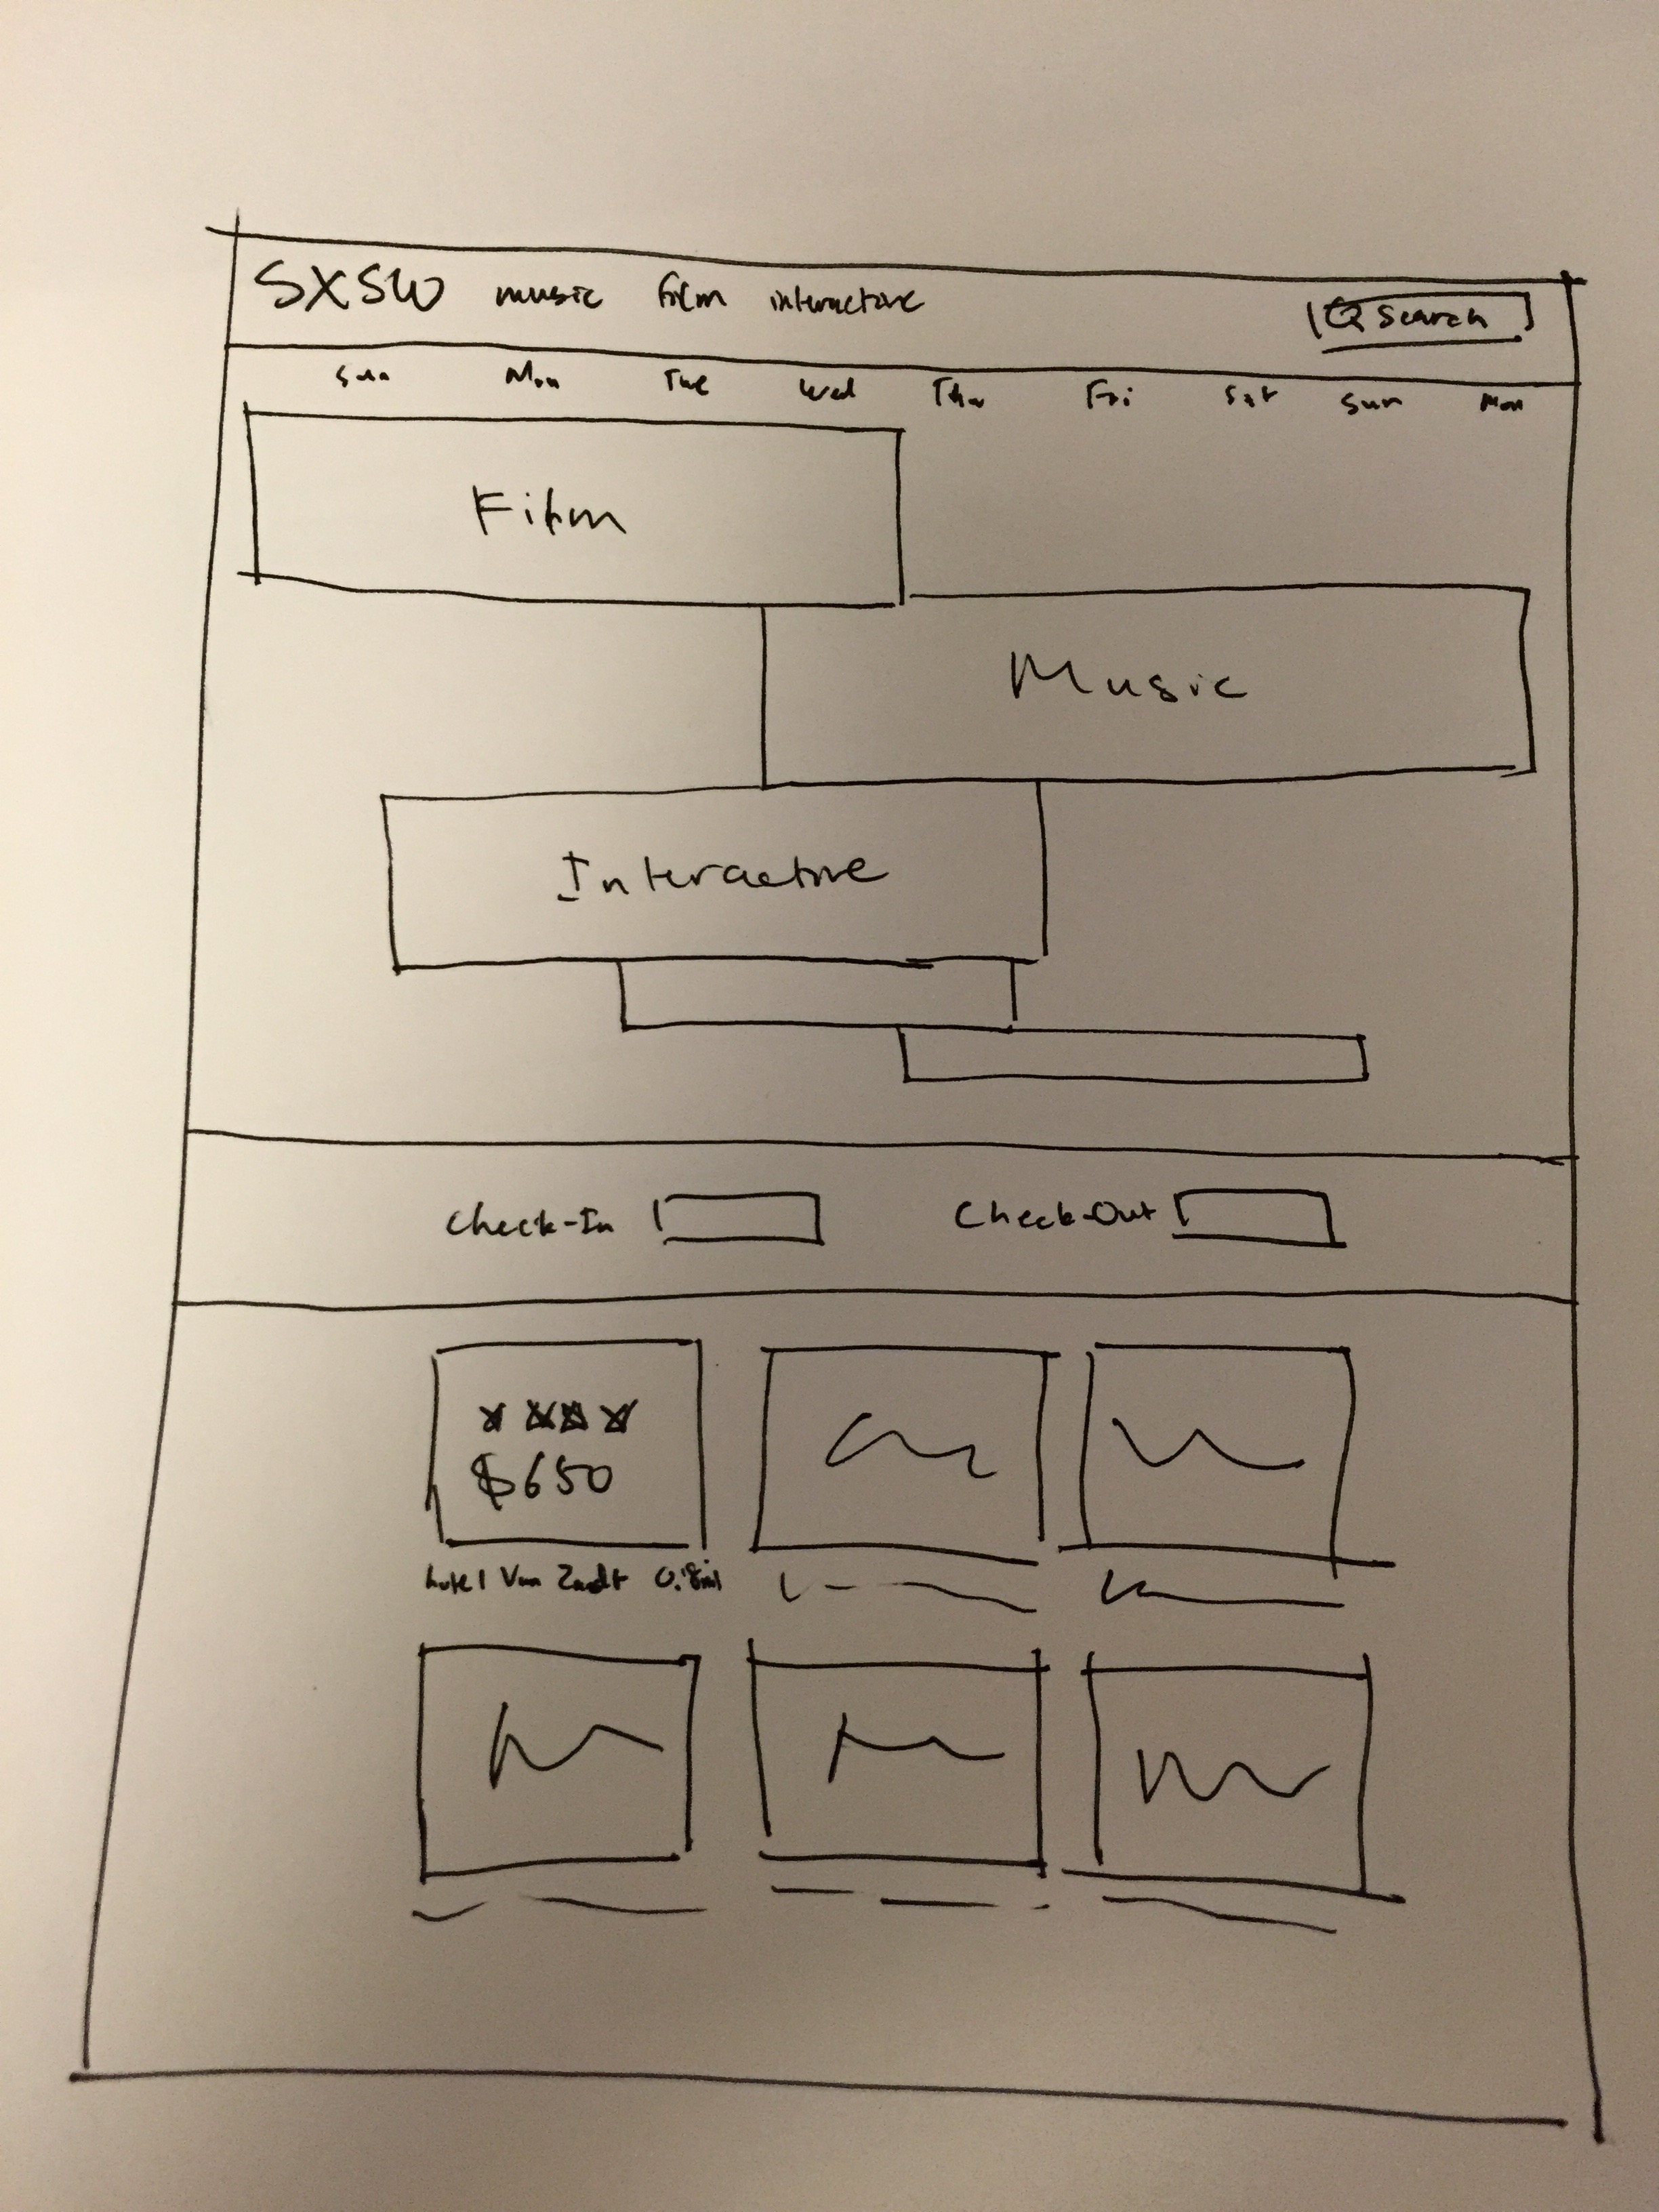 SXSW music film interactive Search
Sun Mon Tue Wed Thu Fri Sat Sun Mon
Film
Music
Interactive
Check-In
Check-Out
$650
hotel Van Zandt 0.8mi